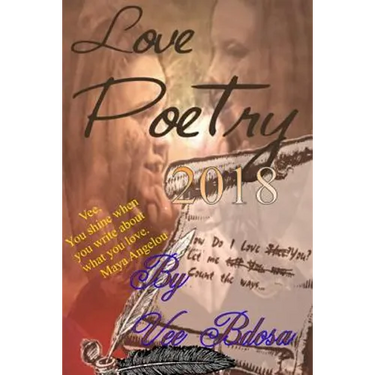 Love
Poetry
2018
Vee,
You shine when
you write about
what you love.
Maya Angelou
How Do I Love You?
Let me
Count the ways...
By
Vee Bdosa